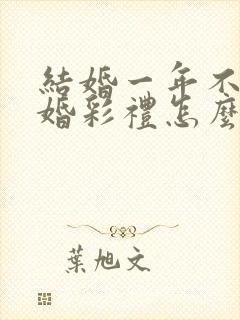 結婚一年不
婚彩禮怎麼
葉旭文